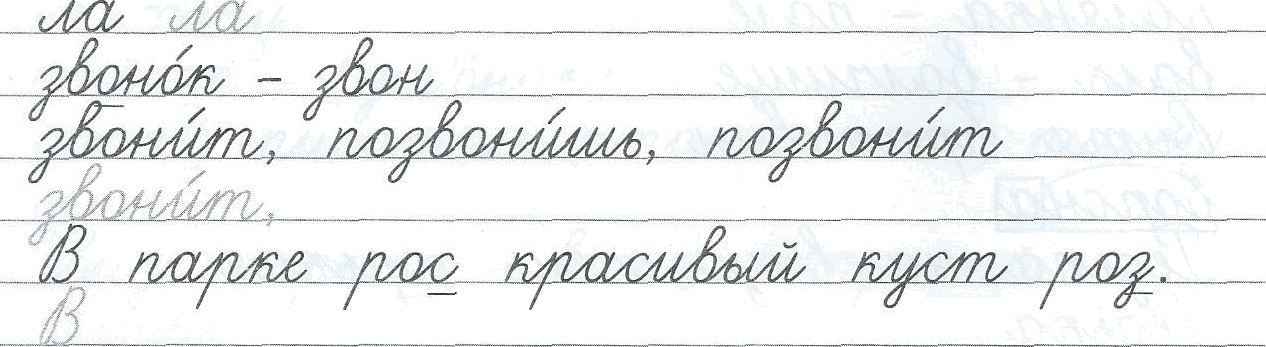 ла ла
звоно́к – звон
звони́т, позвони́шь, позвони́т
звони́т,
В парке рос красивый куст роз.
В